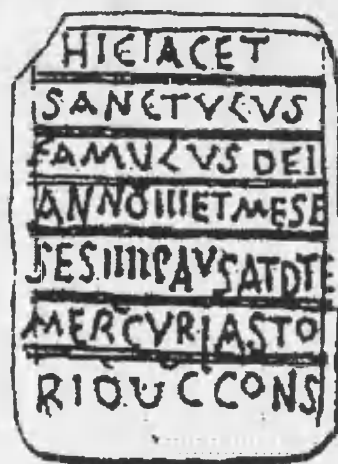 HIC IACET
SANCTVLVS
FAMVLVS DEI
ANNO IIII ET MESE
SES IIII PAVSAT DTE
MERCVRI ASTO
RIO V C CONS